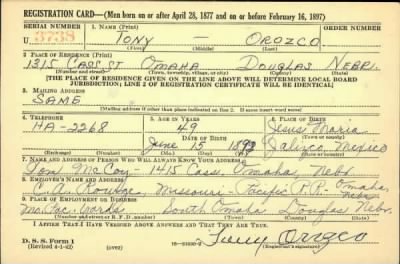 REGISTRATION CARD—(Men born on or after April 28, 1877 and on or before February 16, 1897)
SERIAL NUMBER 1. NAME (Print) ORDER NUMBER
U 3738 TONY — OROZCO
(First) (Middle) (Last)
2. PLACE OF RESIDENCE (Print)
1315 CASS ST OMAHA DOUGLAS NEBR.
(Number and street) (Town, township, village, or city) (County) (State)
[THE PLACE OF RESIDENCE GIVEN ON THE LINE ABOVE WILL DETERMINE LOCAL BOARD
JURISDICTION; LINE 2 OF REGISTRATION CERTIFICATE WILL BE IDENTICAL]
3. MAILING ADDRESS
SAME
[Mailing address if other than place indicated on line 2. If same insert word same]
4. TELEPHONE 5. AGE IN YEARS 6. PLACE OF BIRTH
HA-2268 49 Jesus Maria
DATE OF BIRTH (Town or county)
June 15 1892 Jalizco, Mexico
(Exchange) (Number) (Mo.) (Day) (Yr.) (State or country)
7. NAME AND ADDRESS OF PERSON WHO WILL ALWAYS KNOW YOUR ADDRESS
Tom McCoy - 1415 Cass. Omaha, Nebr.
8. EMPLOYER'S NAME AND ADDRESS
C.A. Missouri-Pacific R.R. Omaha, Nebr.
9. PLACE OF EMPLOYMENT OR BUSINESS
Mo. Pac. Works South Omaha Douglas Nebr.
(Number and street or R. F. D. number) (Town) (County) (State)
I AFFIRM THAT I HAVE VERIFIED ABOVE ANSWERS AND THAT THEY ARE TRUE.
D. S. S. Form 1
(Revised 4-1-42) (over) Tony Orozco
(Registrant's signature)